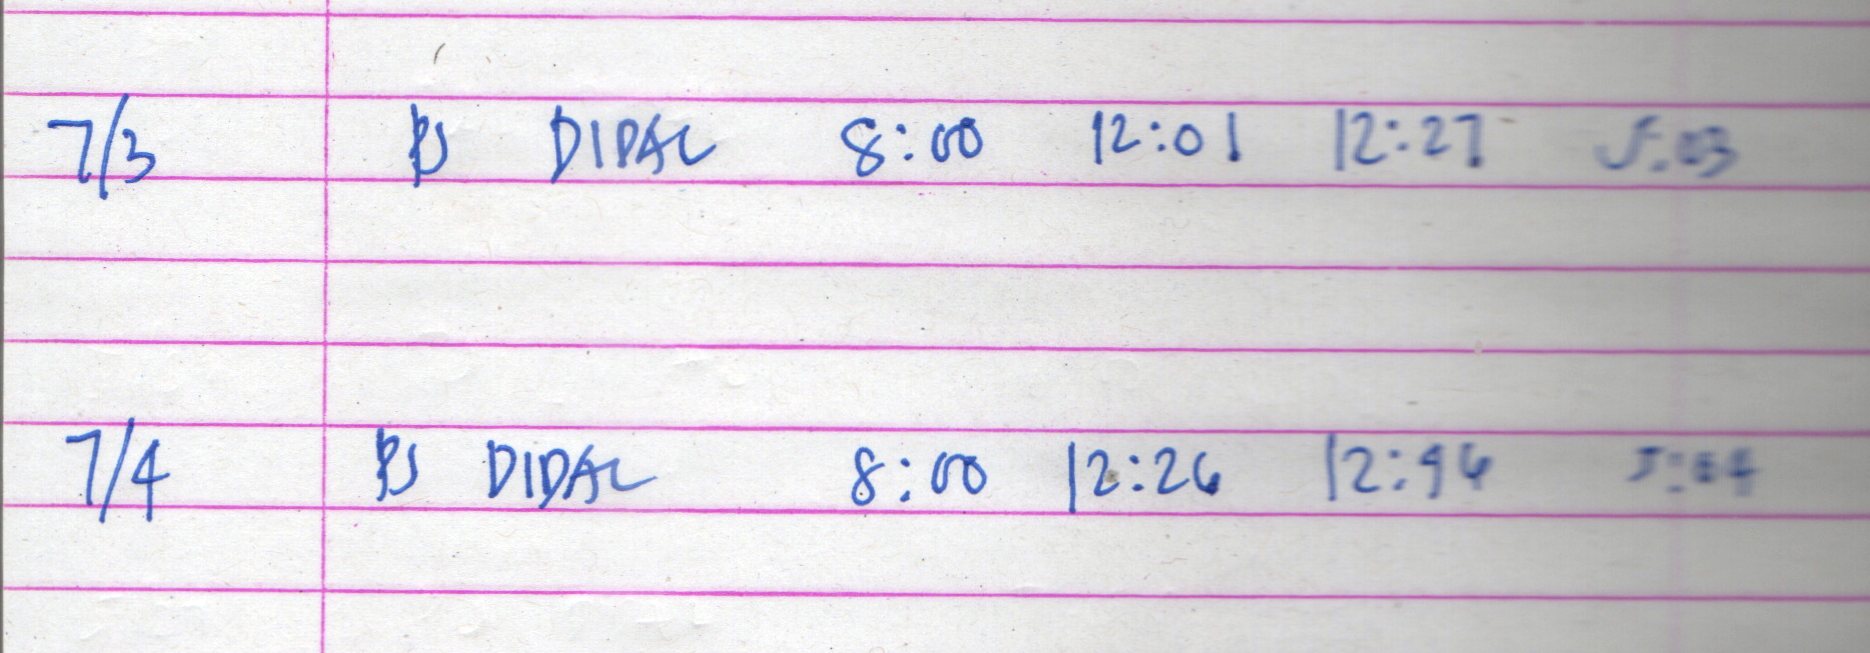 7/3 PS DIDAL 8:00 12:01 12:27 5:03
7/4 PS DIDAL 8:00 12:26 12:46 5:04